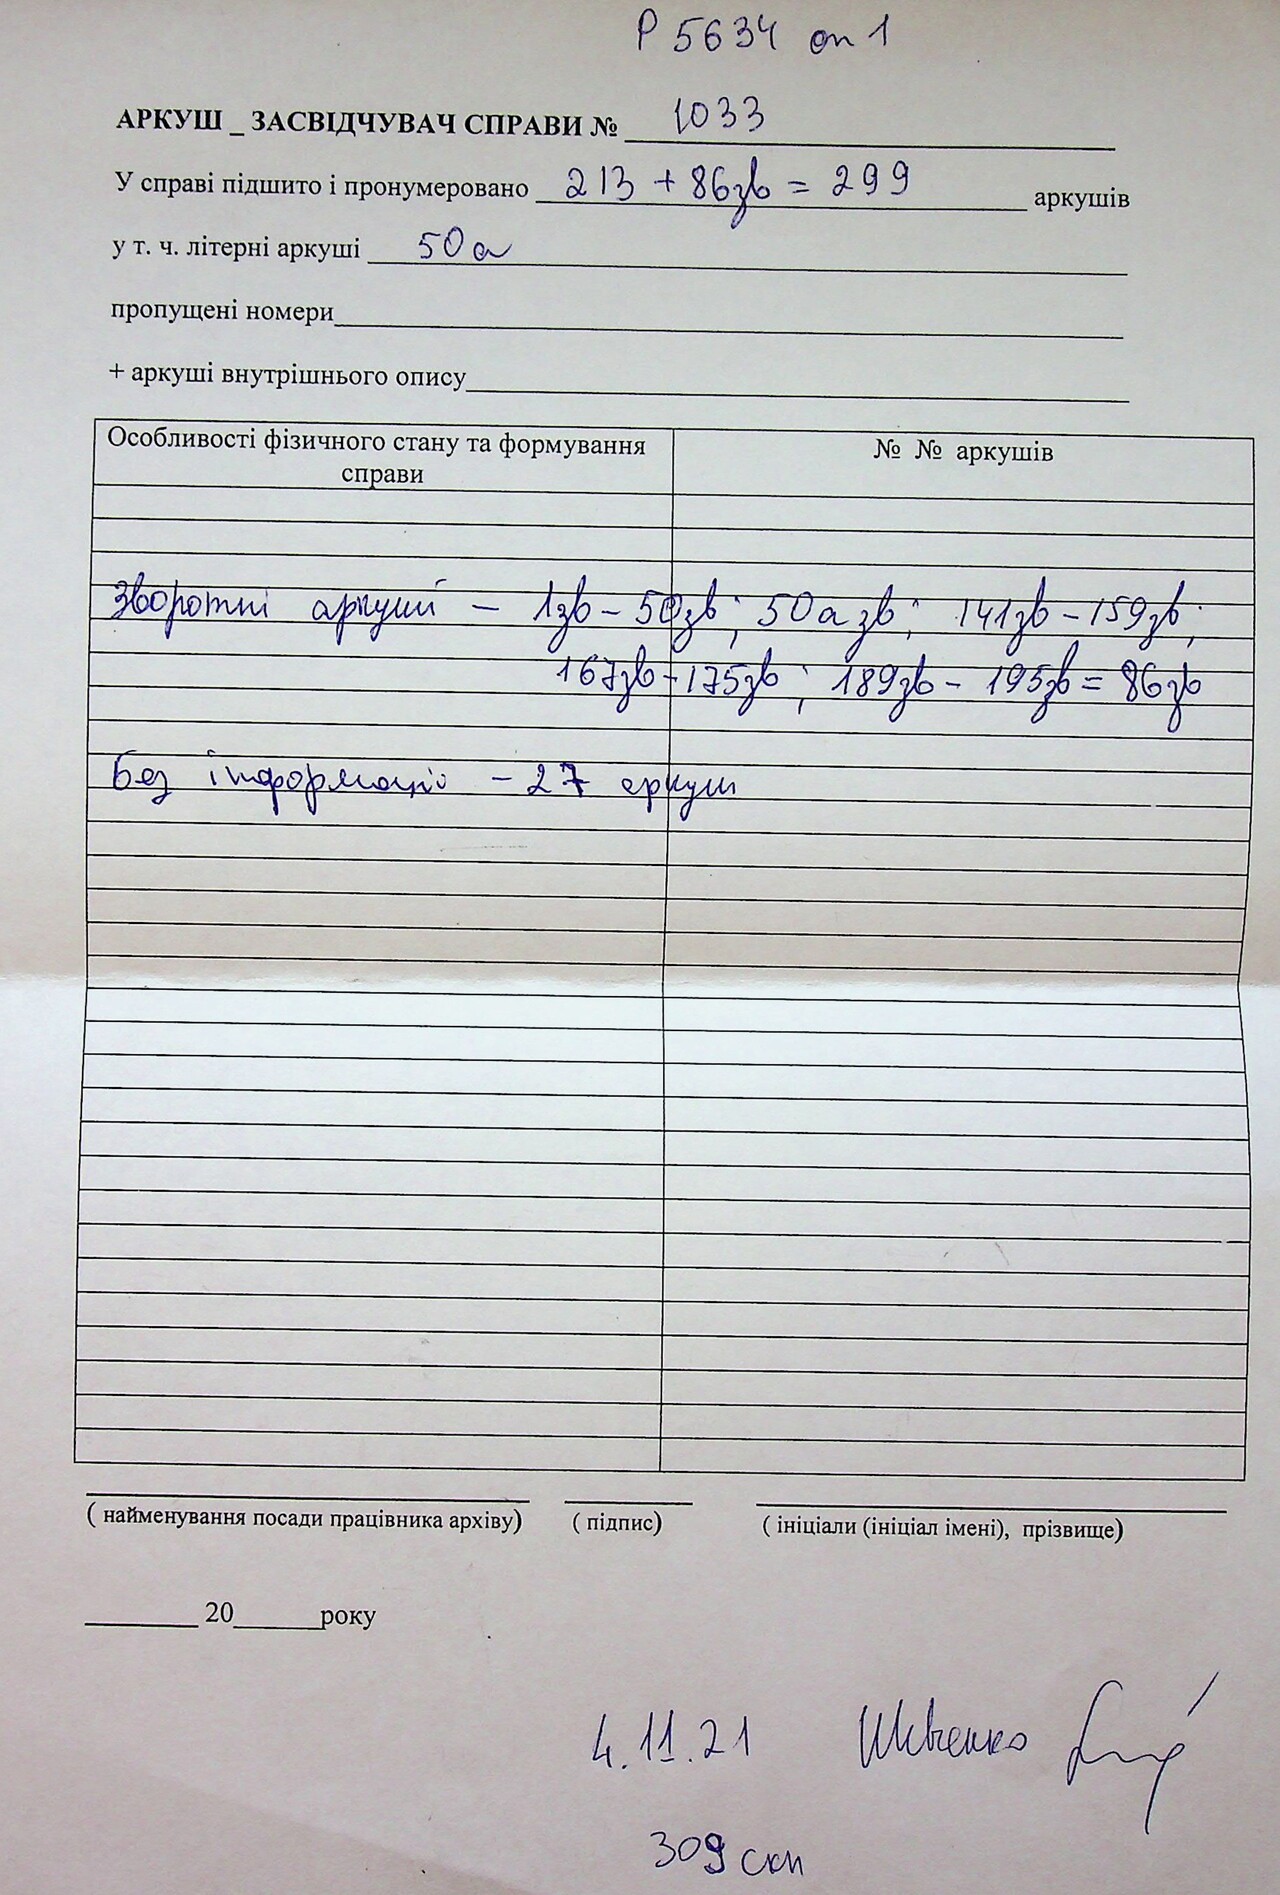 Р 5634 оп 1
АРКУШ _ ЗАСВІДЧУВАЧ СПРАВИ № 1033
У справі підшито і пронумеровано 213 + 86зв = 299 аркушів
у т. ч. літерні аркуші 50а
пропущені номери
+ аркуші внутрішнього опису
Особливості фізичного стану та формування справи
№ № аркушів
Зворотні аркуші – 1зв – 50зв; 50а зв; 141зв – 159зв;
167зв – 175зв; 189зв – 195зв = 86зв
Без інформації – 27 аркуш
( найменування посади працівника архіву) ( підпис) ( ініціали (ініціал імені), прізвище)
20 року
4.11.21 Шевченко
309 скн